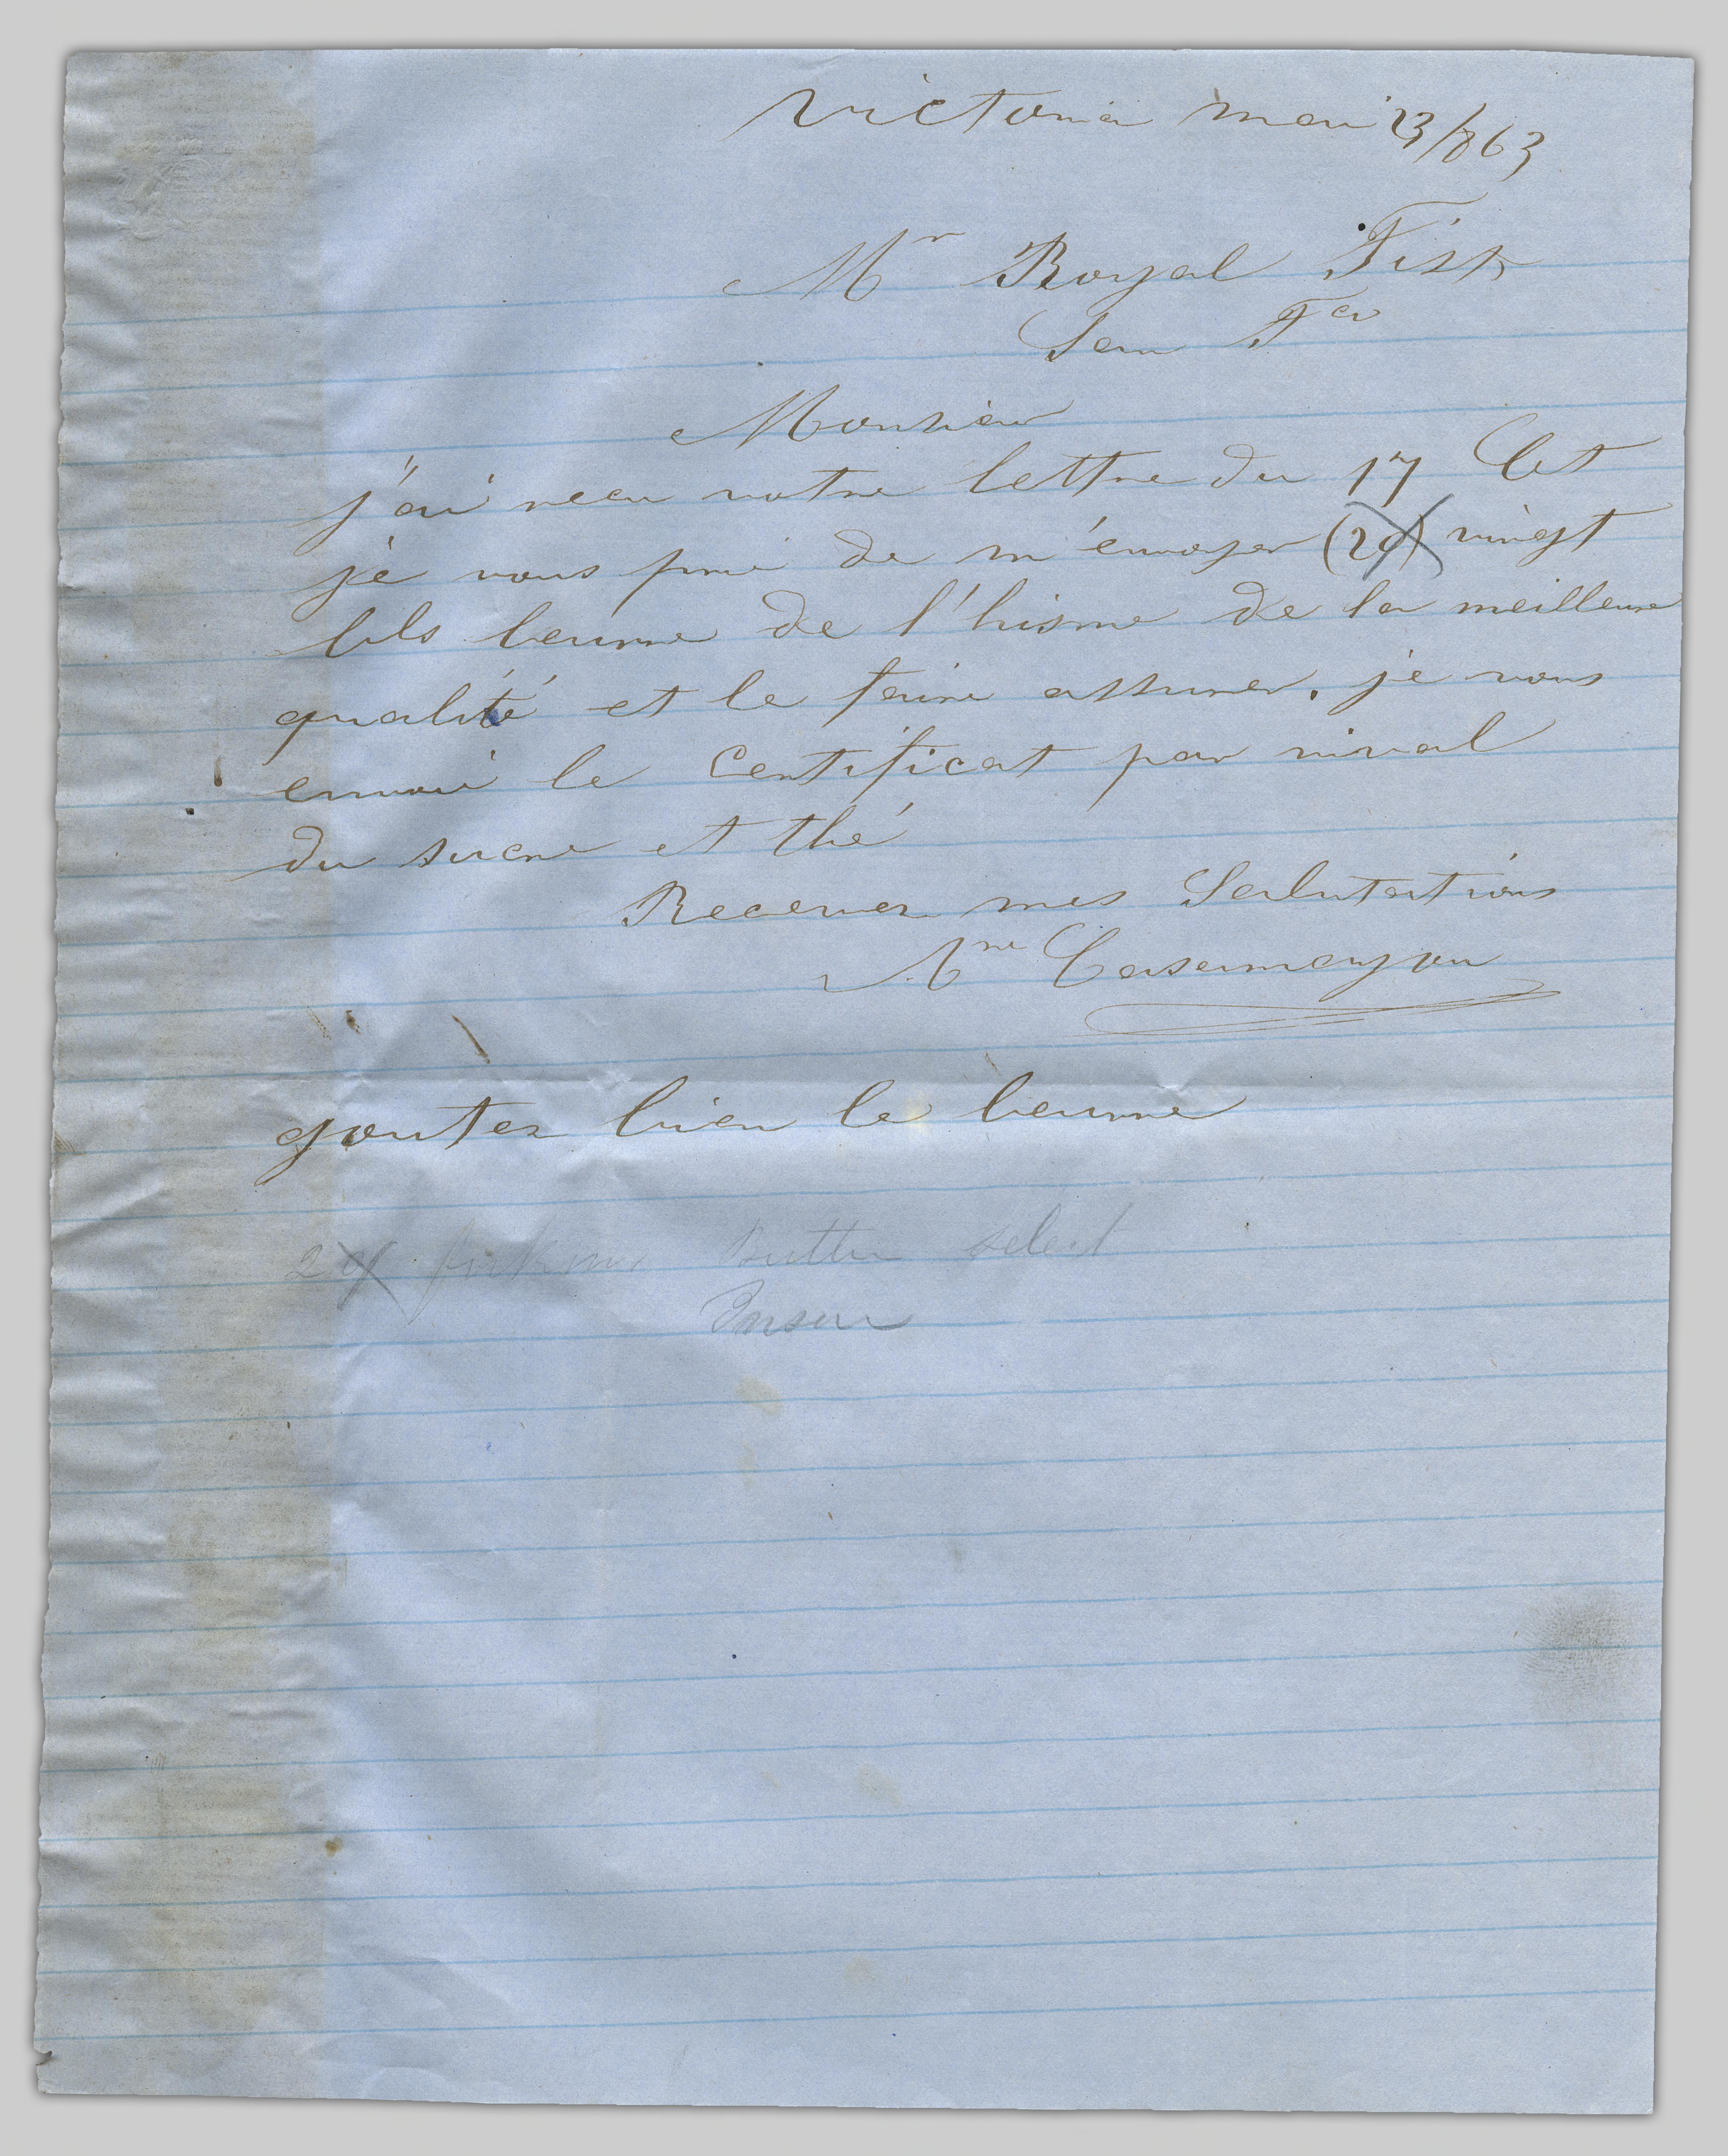 Victoria mai 23/863
Mr Royal Fisk
San Fco
Monsieur
j'ai recu votre lettre du 17 Ct
je vous prie de m'envoyer (20) vingt
bls beurre de l'hisme de la meilleure
qualité et le faire assurer. je vous
envoi le Certificat par rival
du sucre et thé
Recever mes Salutations
Mme Casamayou
goutez bien le beurre
20 firkins Butter select
Insure